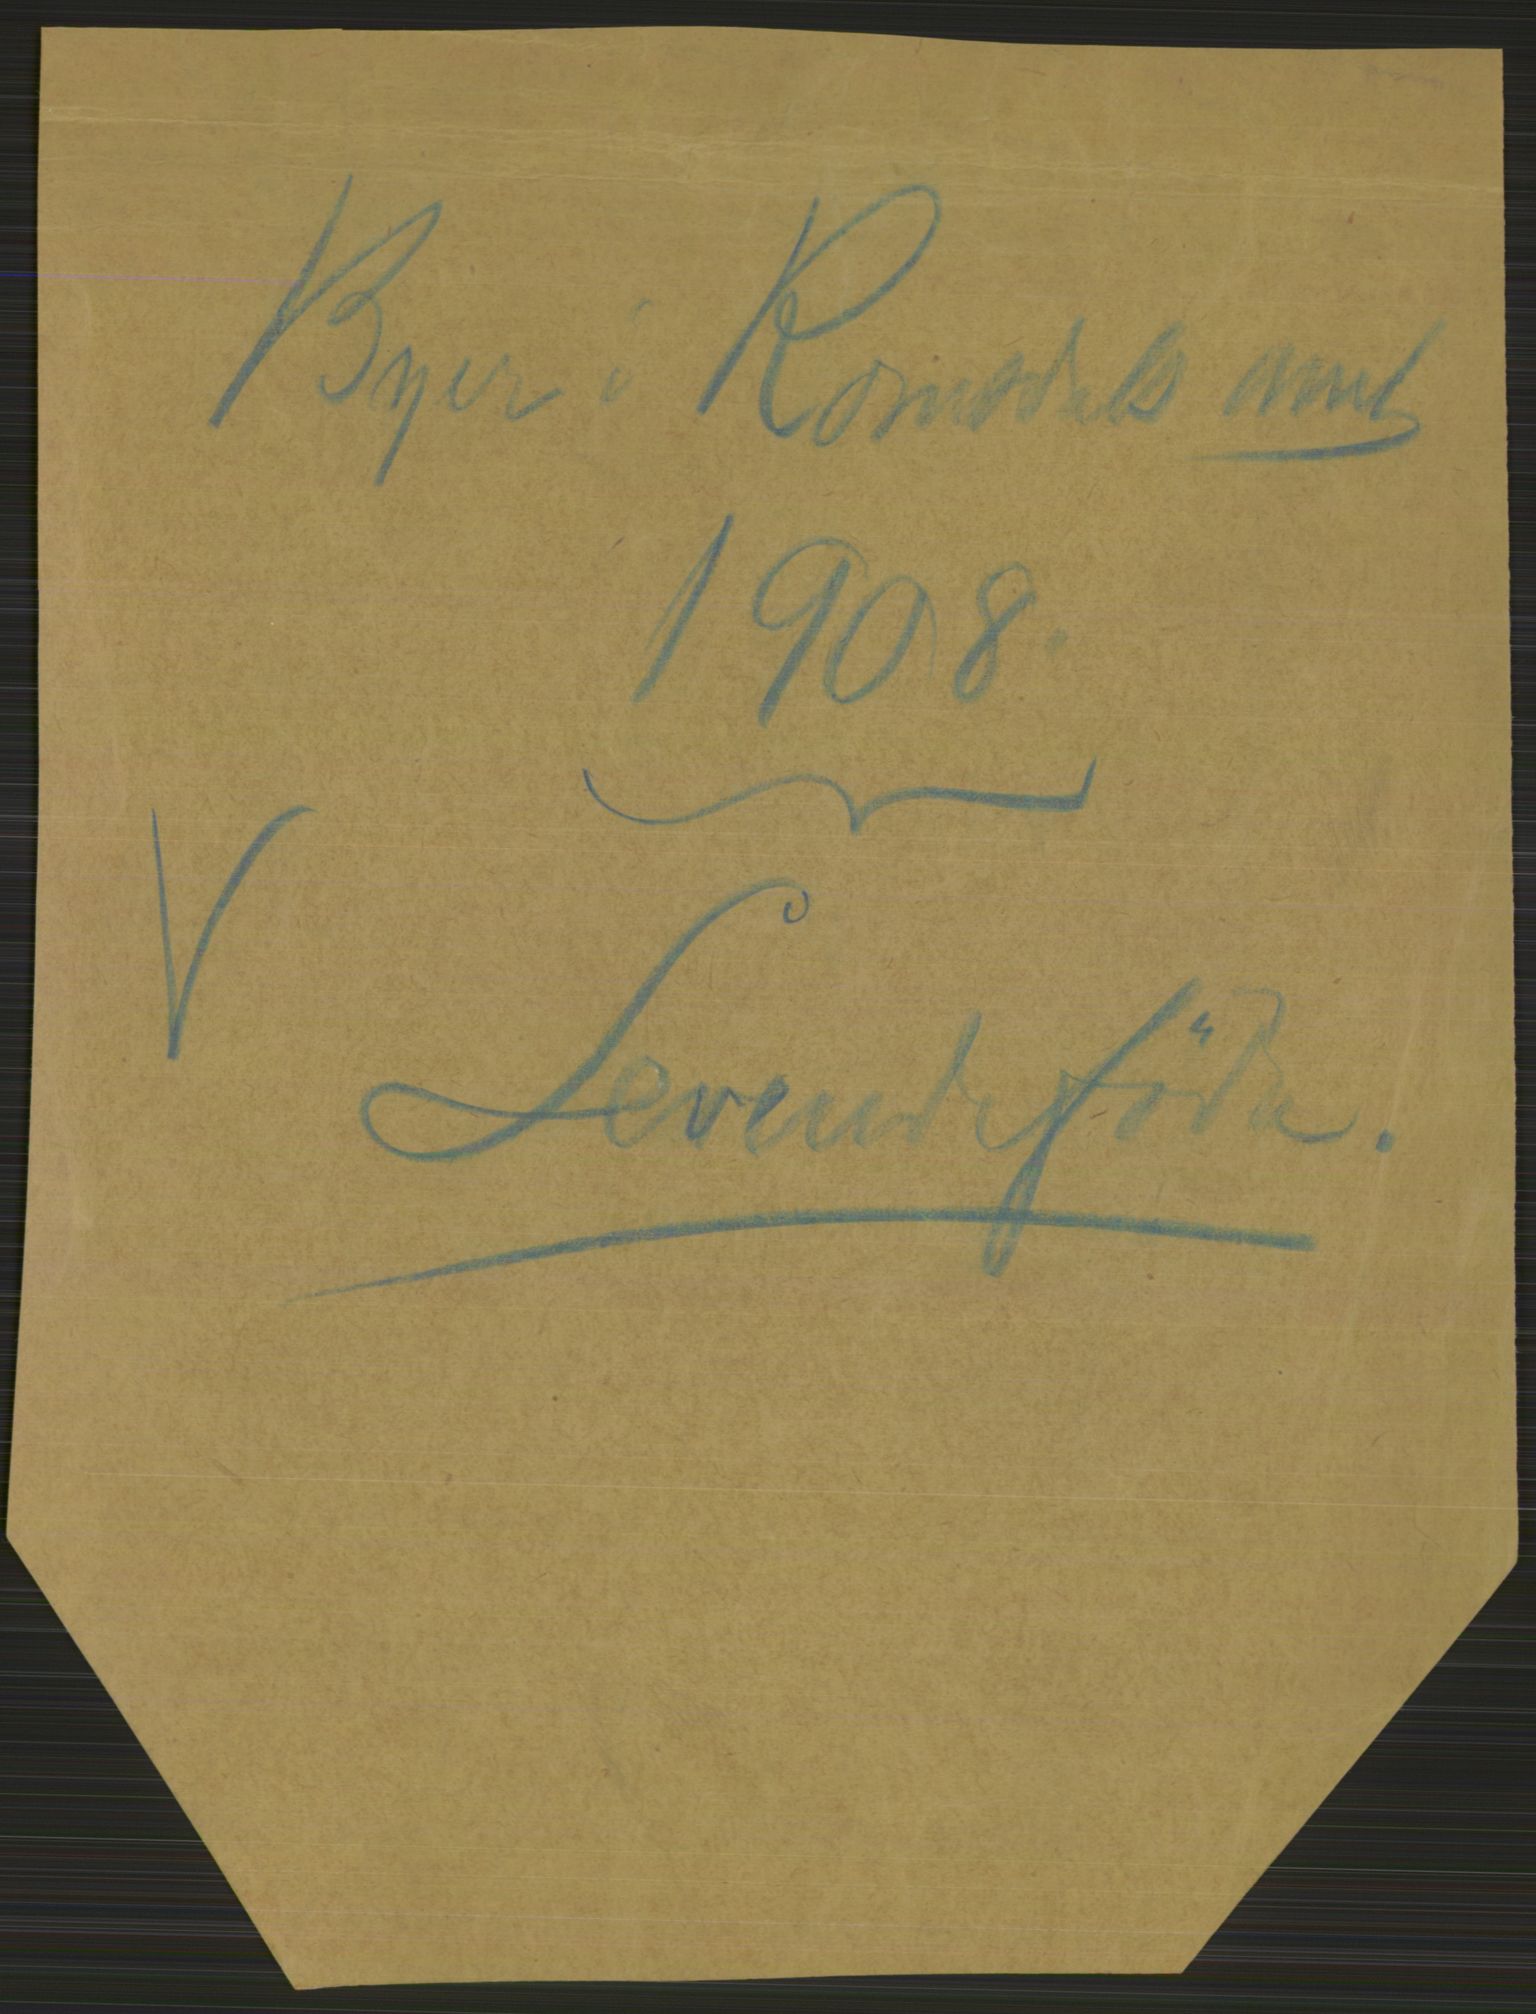 Byer i Romsdals amt
1908.
V Levendefödte.